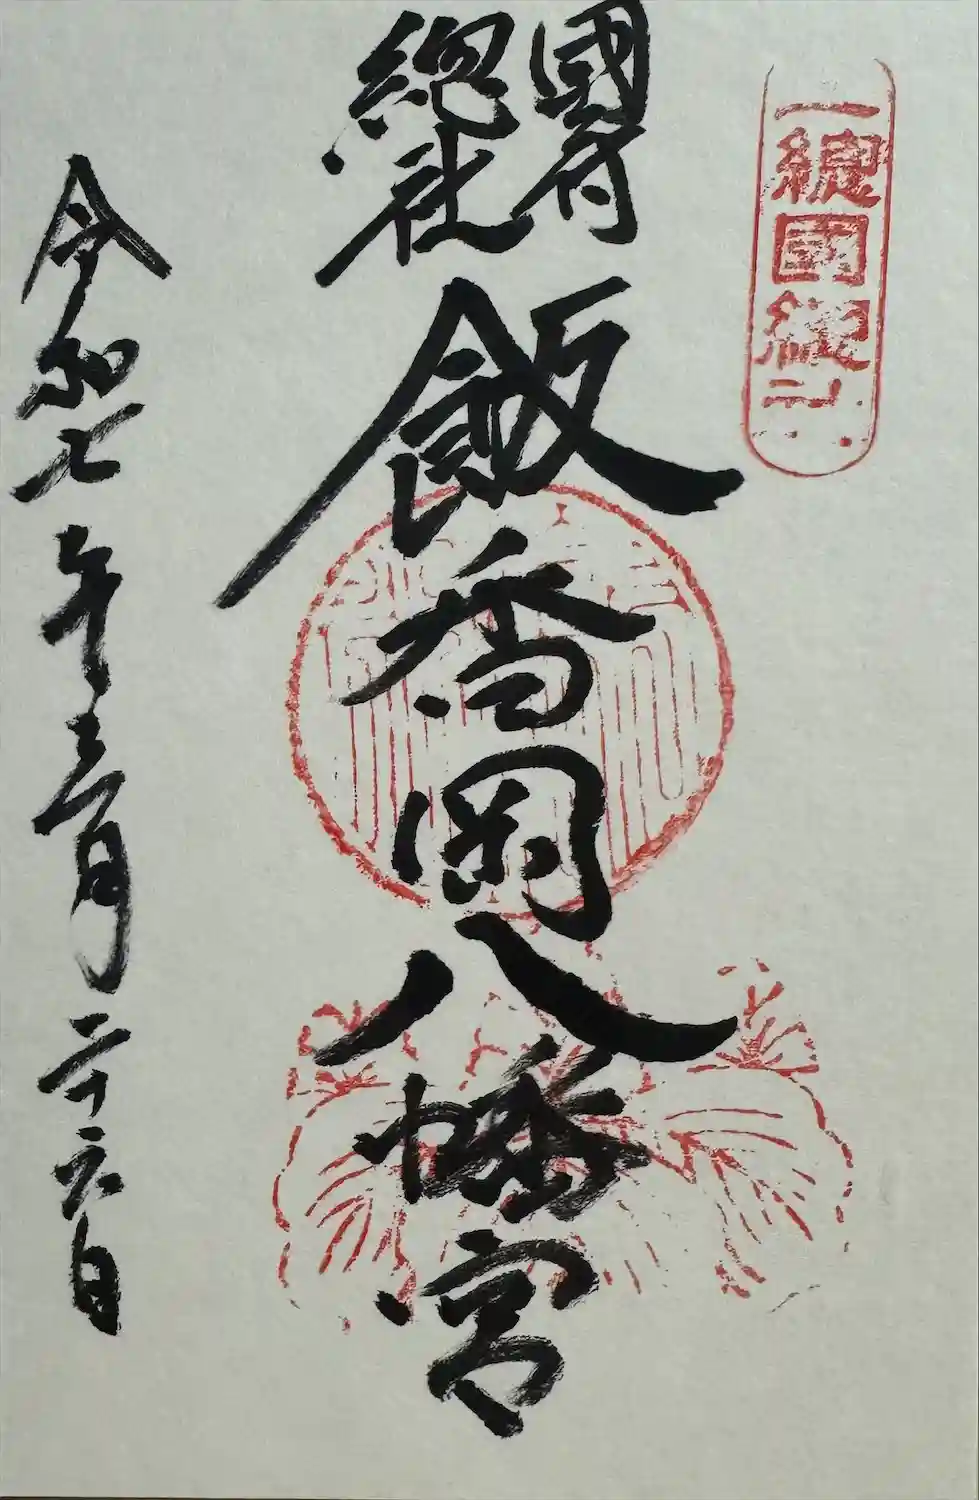 總國總社
國府
總社
飯香岡八幡宮
令和七年三月二十六日